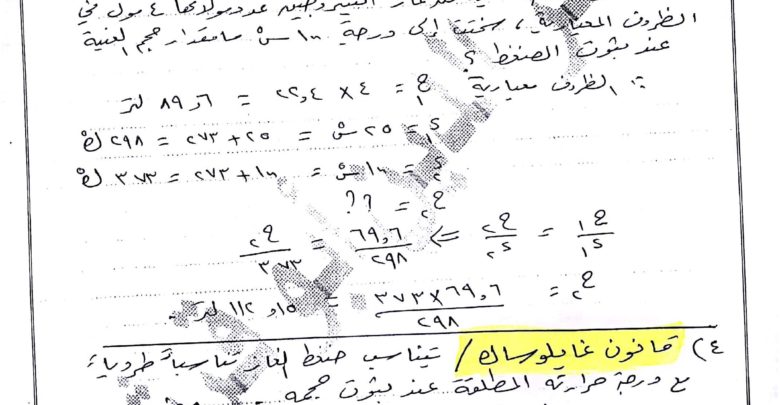 غاز النيتروجين عدد مولاتها ٤ مول في
الظروف المعيارية ، سخنت إلى درجة ١٠٠ سْ ما مقدار حجم العينة
عند ثبوت الضغط ؟
∵ الظروف معيارية ح١ = ٤ × ٢٢,٤ = ٨٩,٦ لتر
د١ = ٢٥ سْ = ٢٥ + ٢٧٣ = ٢٩٨ كْ
د٢ = ١٠٠ سْ = ١٠٠ + ٢٧٣ = ٣٧٣ كْ
ح٢ = ؟؟
ح١/د١ = ح٢/د٢ ⇐ ٦٩,٦/٢٩٨ = ح٢/٣٧٣
ح٢ = ٣٧٣×٦٩,٦/٢٩٨ = ١١٢,١٥ لتر .
٤) قانون غايلوساك / يتناسب ضغط الغاز تناسباً طردياً
مع درجة حرارته المطلقة عند ثبوت حجمه